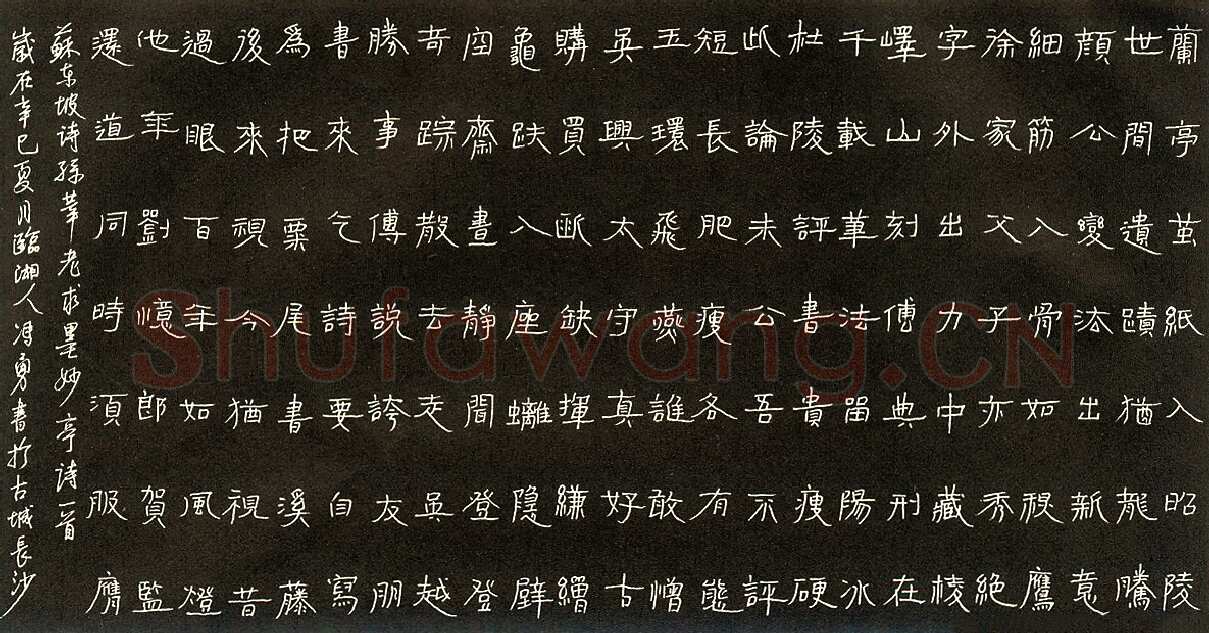 蘭亭茧紙入昭陵
世間遺蹟猶龍騰
顔公變法出新意
細筋入骨如秋鷹
徐家父子亦秀絶
字外出力中藏棱
嶧山刻傳典刑在
千載筆法留陽冰
杜陵評書貴瘦硬
此論未公吾不評
短長肥瘦各有態
玉環飛燕誰敢憎
吳興太守真好古
購買斷缺揮縑繒
龜趺入座螭隱壁
空齋晝靜聞登登
奇踪散去走吳越
勝事傳説誇友朋
書來乞詩要自寫
爲把栗尾書溪藤
後來視今猶視昔
過眼百年如風燈
他年劉郎憶賀監
還道同時須服膺
蘇东坡诗孫莘老求墨妙亭诗一首
歲在辛巳夏月臨湘人冯勇書於古城長沙
Shufawang.CN